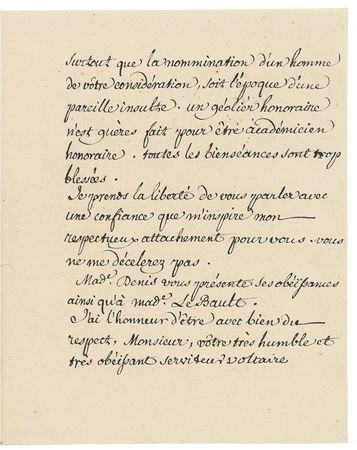 surtout que la nommination d'un homme
de vôtre considération, soit l'époque d'une
pareille insulte. un géolier honoraire
n'est guères fait pour être académicien
honoraire. toutes les bienséances sont trop
blessées.
Je prends la liberté de vous parler avec
une confiance que m'inspire mon
respectueux attachement pour vous. vous
ne me décelerez pas.
Made. Denis vous présente ses obéissances
ainsi qu'à made. Le Bault.
J'ai l'honneur d'être avec bien du
respect, Monsieur, vôtre très humble et
très obéissant serviteur Voltaire